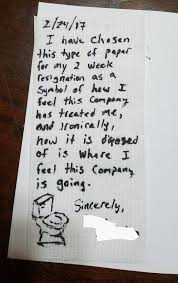 2/24/17
I have chosen
this type of paper
for my 2 week
resignation as a
Symbol of how I
feel this Company
has treated me,
and Ironically,
how it is disposed
of is where I
feel this Company
is going.
Sincerely,